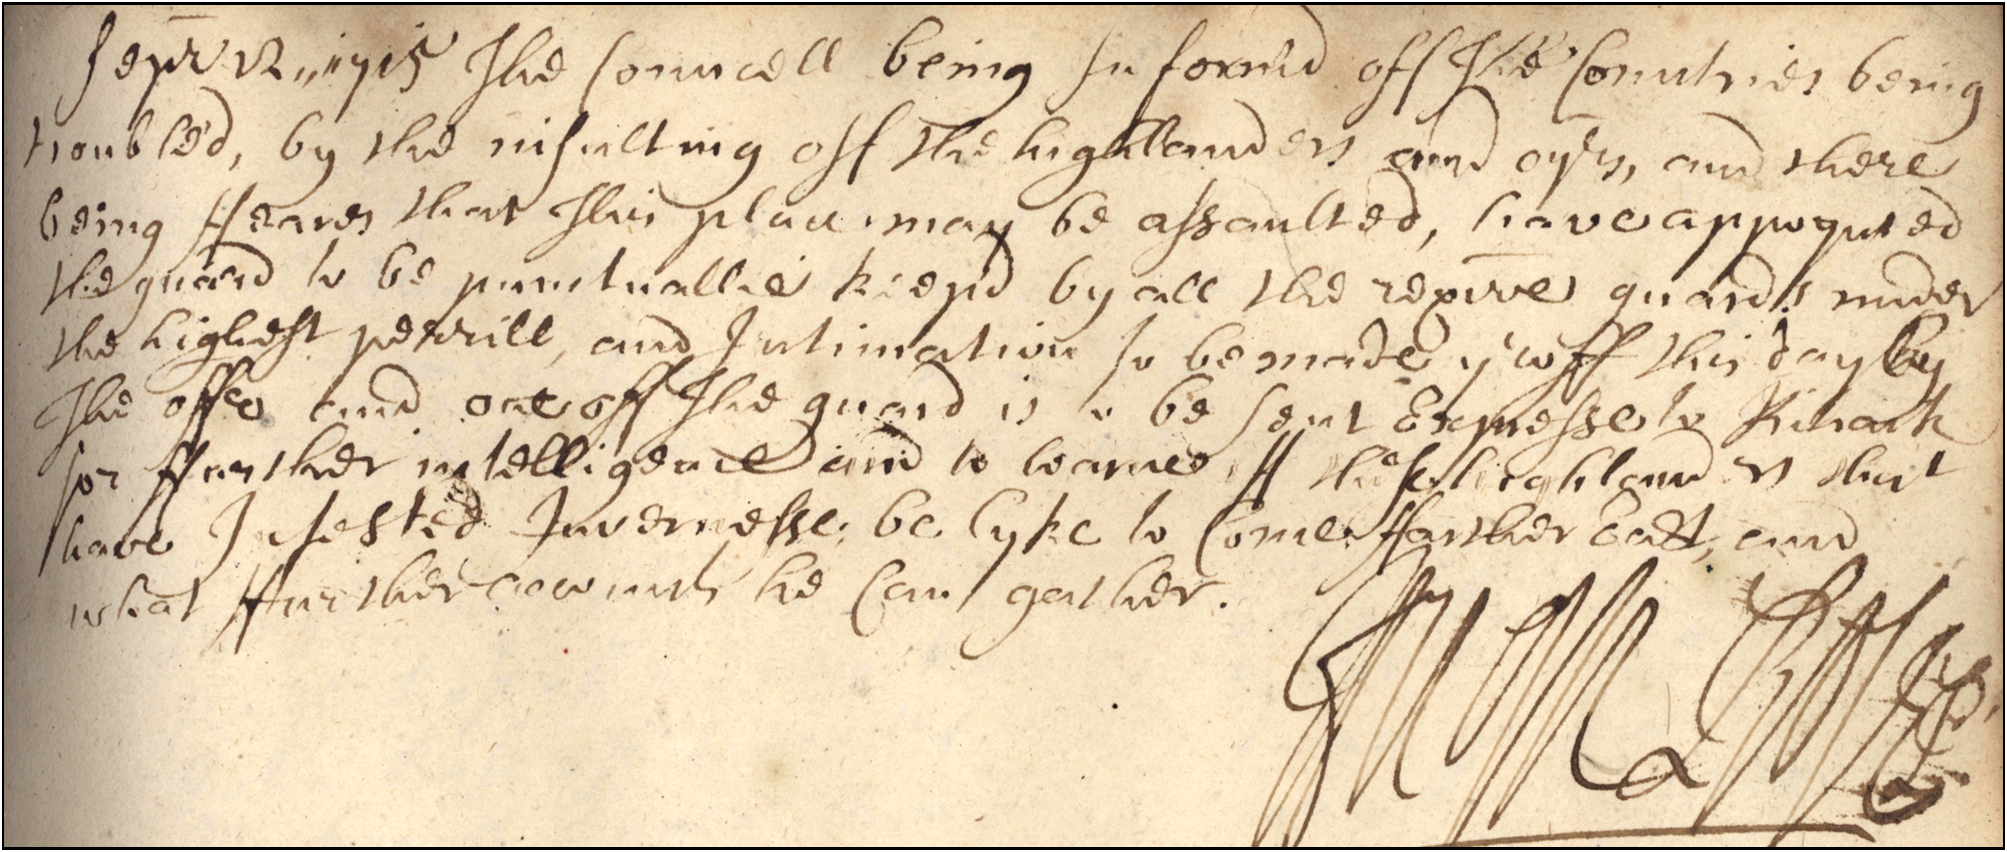 Sepr 12 1715 The Councell being Informed off The Countries being
troubled, by the insulting off the highlanders and oyrs, and there
being ffeares that This place may be assaulted, have appoynted
the guard to be punctuallie keepd by all the rexive guards under
the highest perrill, and Intimation to be made yroff this day by
The offrs and one off The guard is to be sent Expresse to Kinark
for ffarther intelligence and to learne iff these highlanders that
have Infested Invernesse, be lyke to Come ffarther East, and
what ffurther accounts he Can gather.